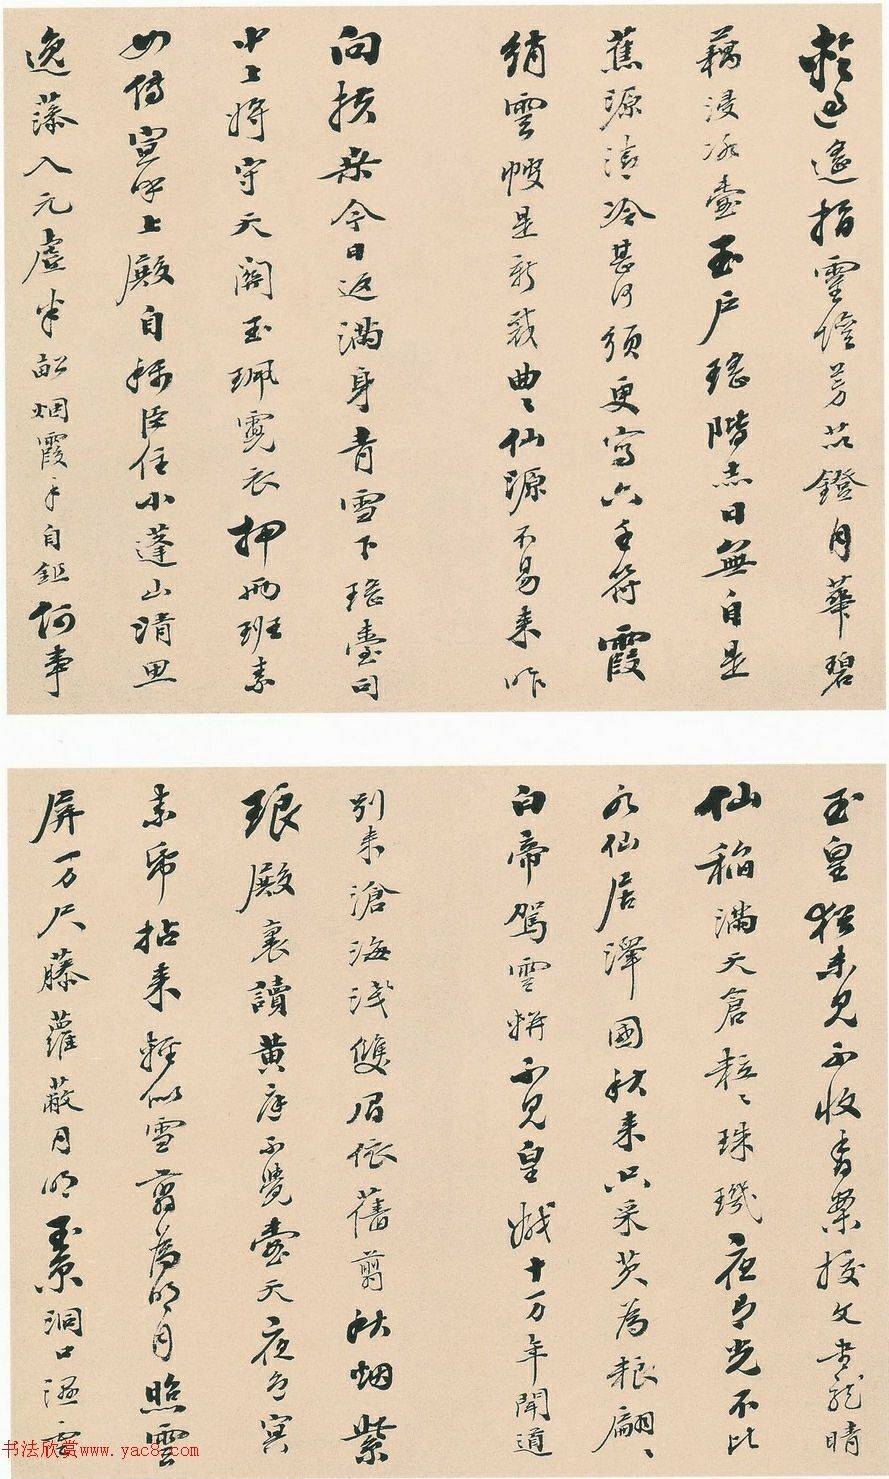 遙指雲陰芳苡鐙月華碧
藕浸冰壺玉戶瑤階盡日無自是
蕉源清冷甚何須更寫六壬符霞
綃雲幔是新裁曲〻仙源不易來昨
向扶桑今日返滿身香雪下瑤臺司
中上將守天閽玉珮霓衣押班素
女傳宣上殿自稱臣住小蓬山清思
逸藻入元虛半畝烟霞手自鉏何事
玉皇猶未見不收香案校文書龍晴
仙稻滿天倉粒〻珠璣夜有光不比
水仙居澤國秋來只采芡為糧翩〻
白帝駕雲輧不見皇娥十万年聞道
別來滄海淺雙眉依舊翦秋烟紫
琅殿裏讀黃庭不覺壺天夜色冥
素帋拈來輕似雪翦為明月照雲
屏万尺藤蘿蔽月明玉京洞口溼雲
书法欣赏www.yac8.com